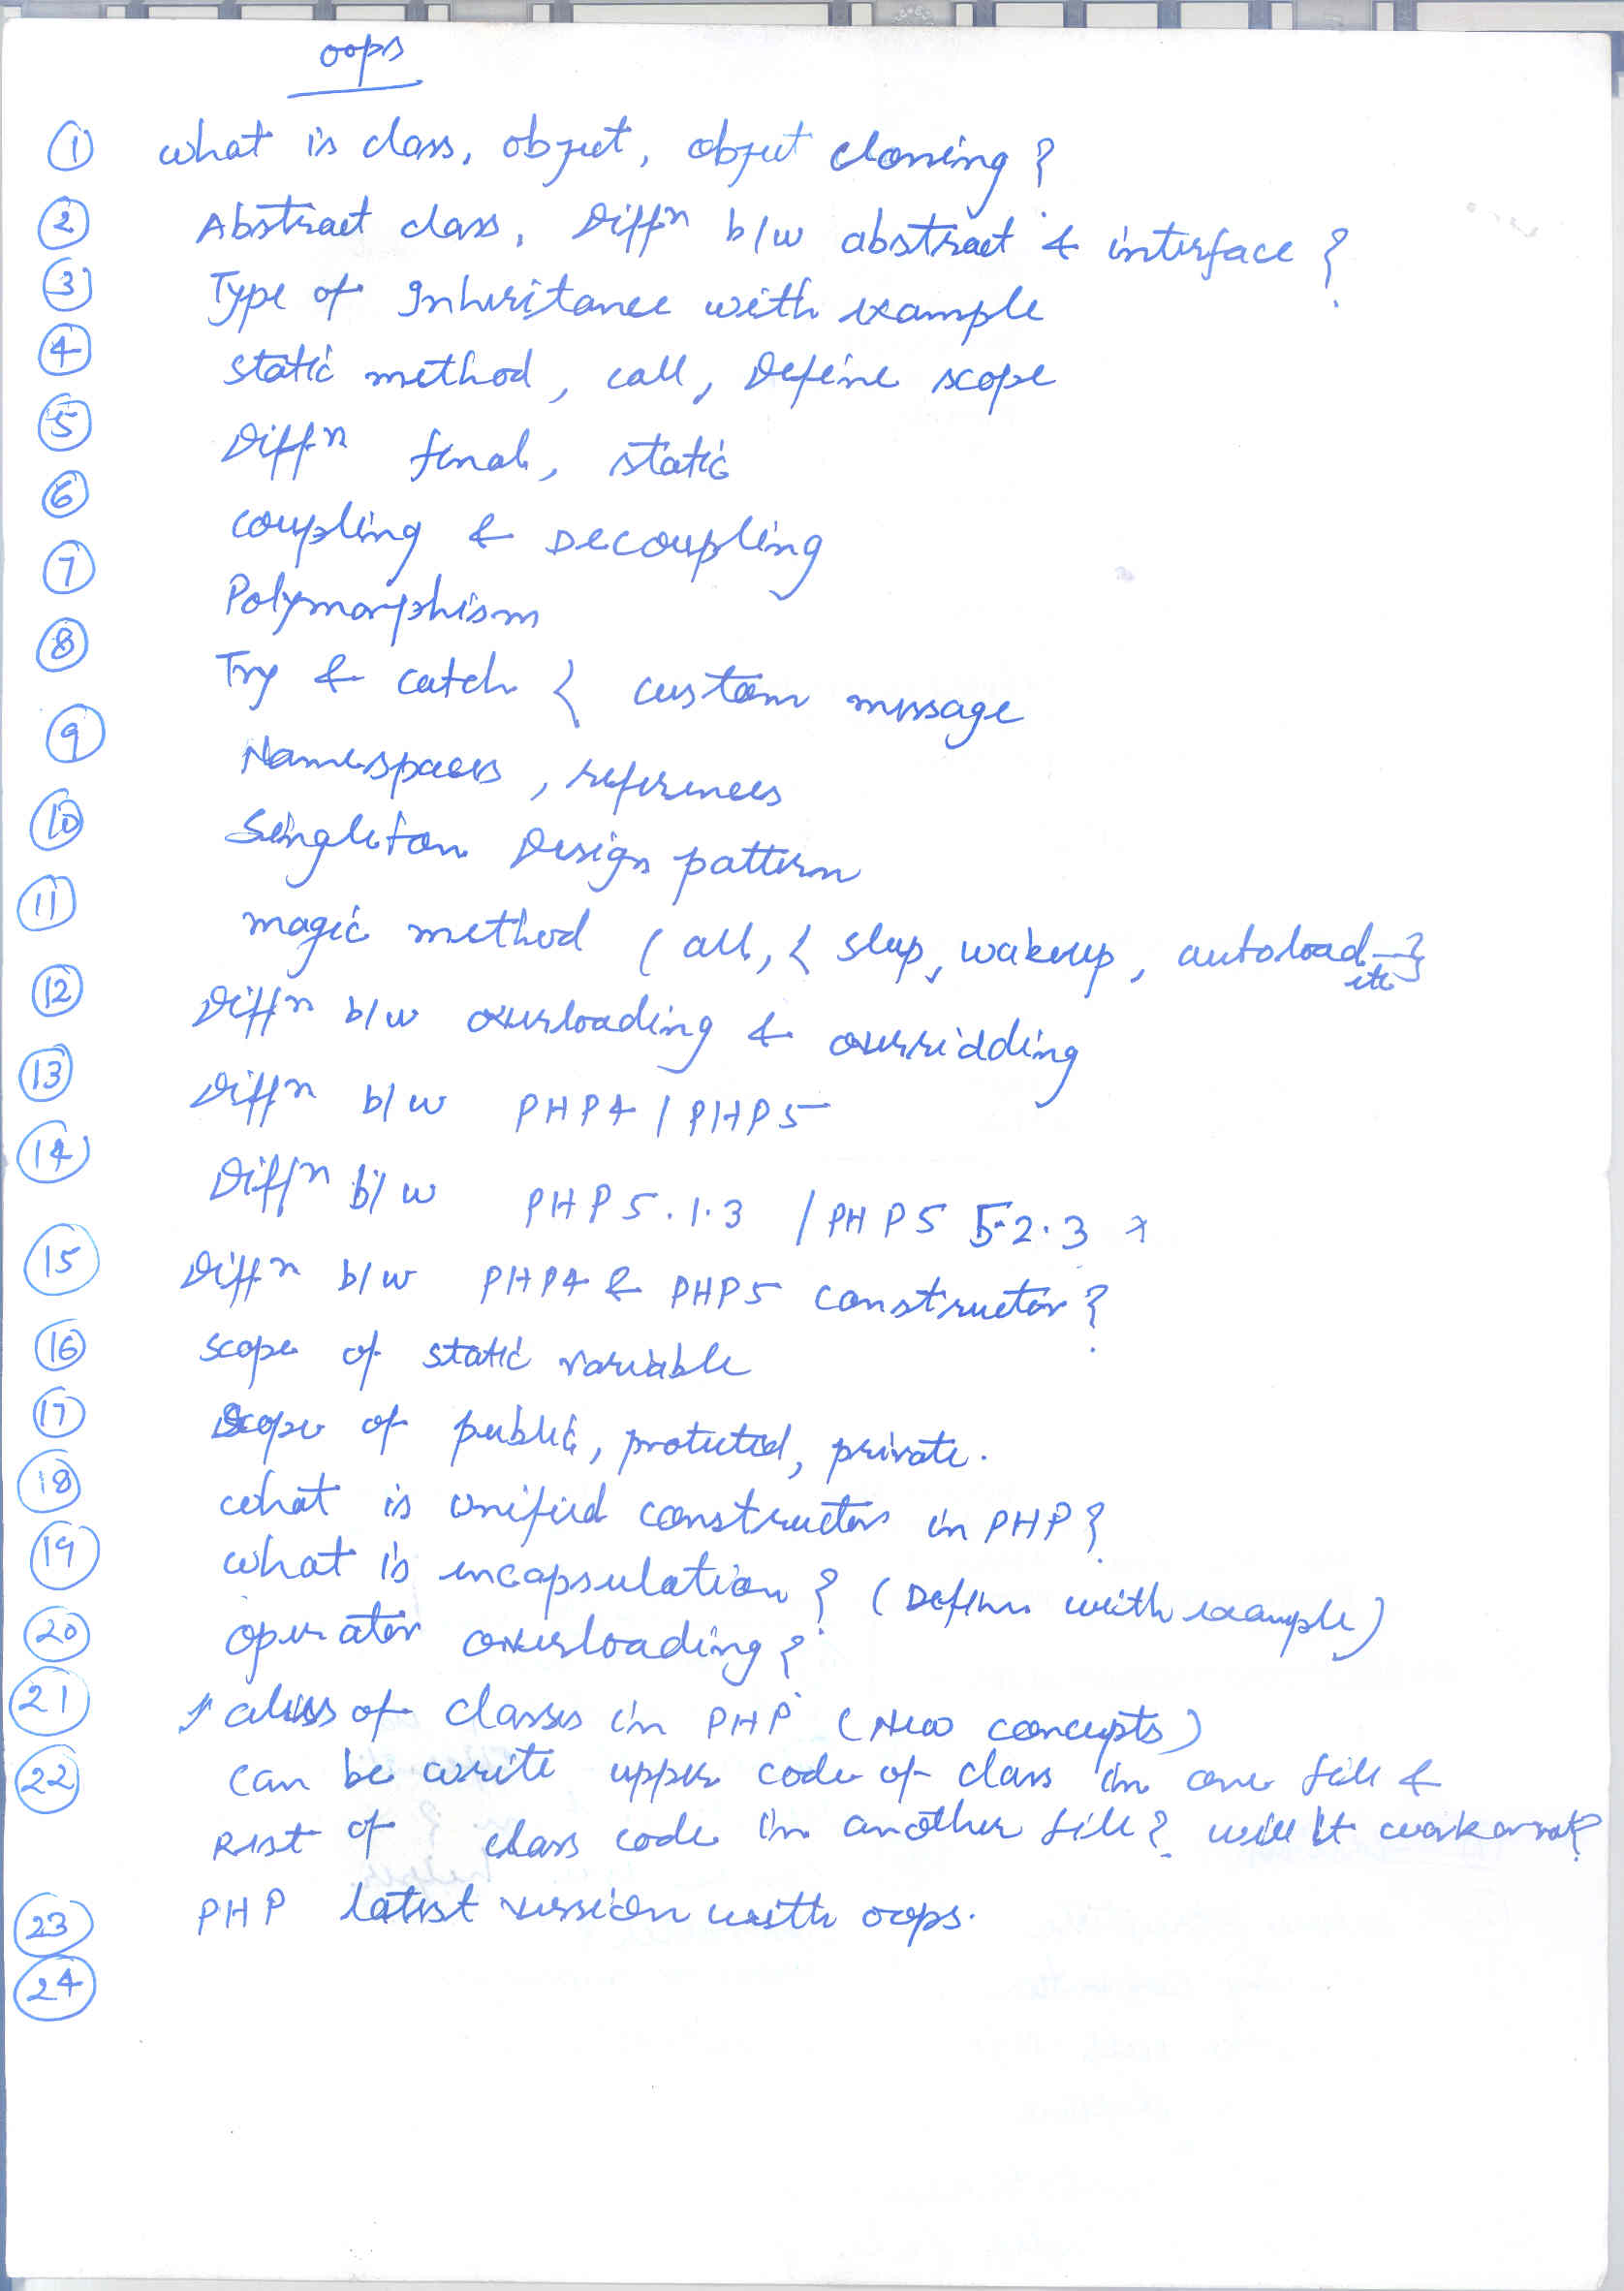 oops
① what is class, object, object cloning?
② Abstract class, Diffn b/w abstract & interface?
③ Type of Inheritance with example
④ static method, call, Define scope
⑤ Diffn final, static
⑥ coupling & Decoupling
⑦ Polymorphism
⑧ Try & catch { custom message
⑨ Namespaces, references
⑩ Singleton Design pattern
⑪ magic method ( all, { sleep, wakeup, autoload etc }
⑫ Diffn b/w overloading & overridding
⑬ Diffn b/w PHP4 / PHP5
⑭ Diffn b/w PHP5.1.3 / PHP5 5.2.3 *
⑮ Diffn b/w PHP4 & PHP5 constructor?
⑯ scope of static variable
⑰ Scope of public, protected, private.
⑱ what is unified constructor in PHP?
⑲ what is encapsulation? (Define with example)
⑳ operator overloading?
㉑ alias of classes in PHP (New concepts)
㉒ can be write upper code of class in one file &
Rest of class code in another file? will it work or not?
㉓ PHP latest version with oops.
㉔